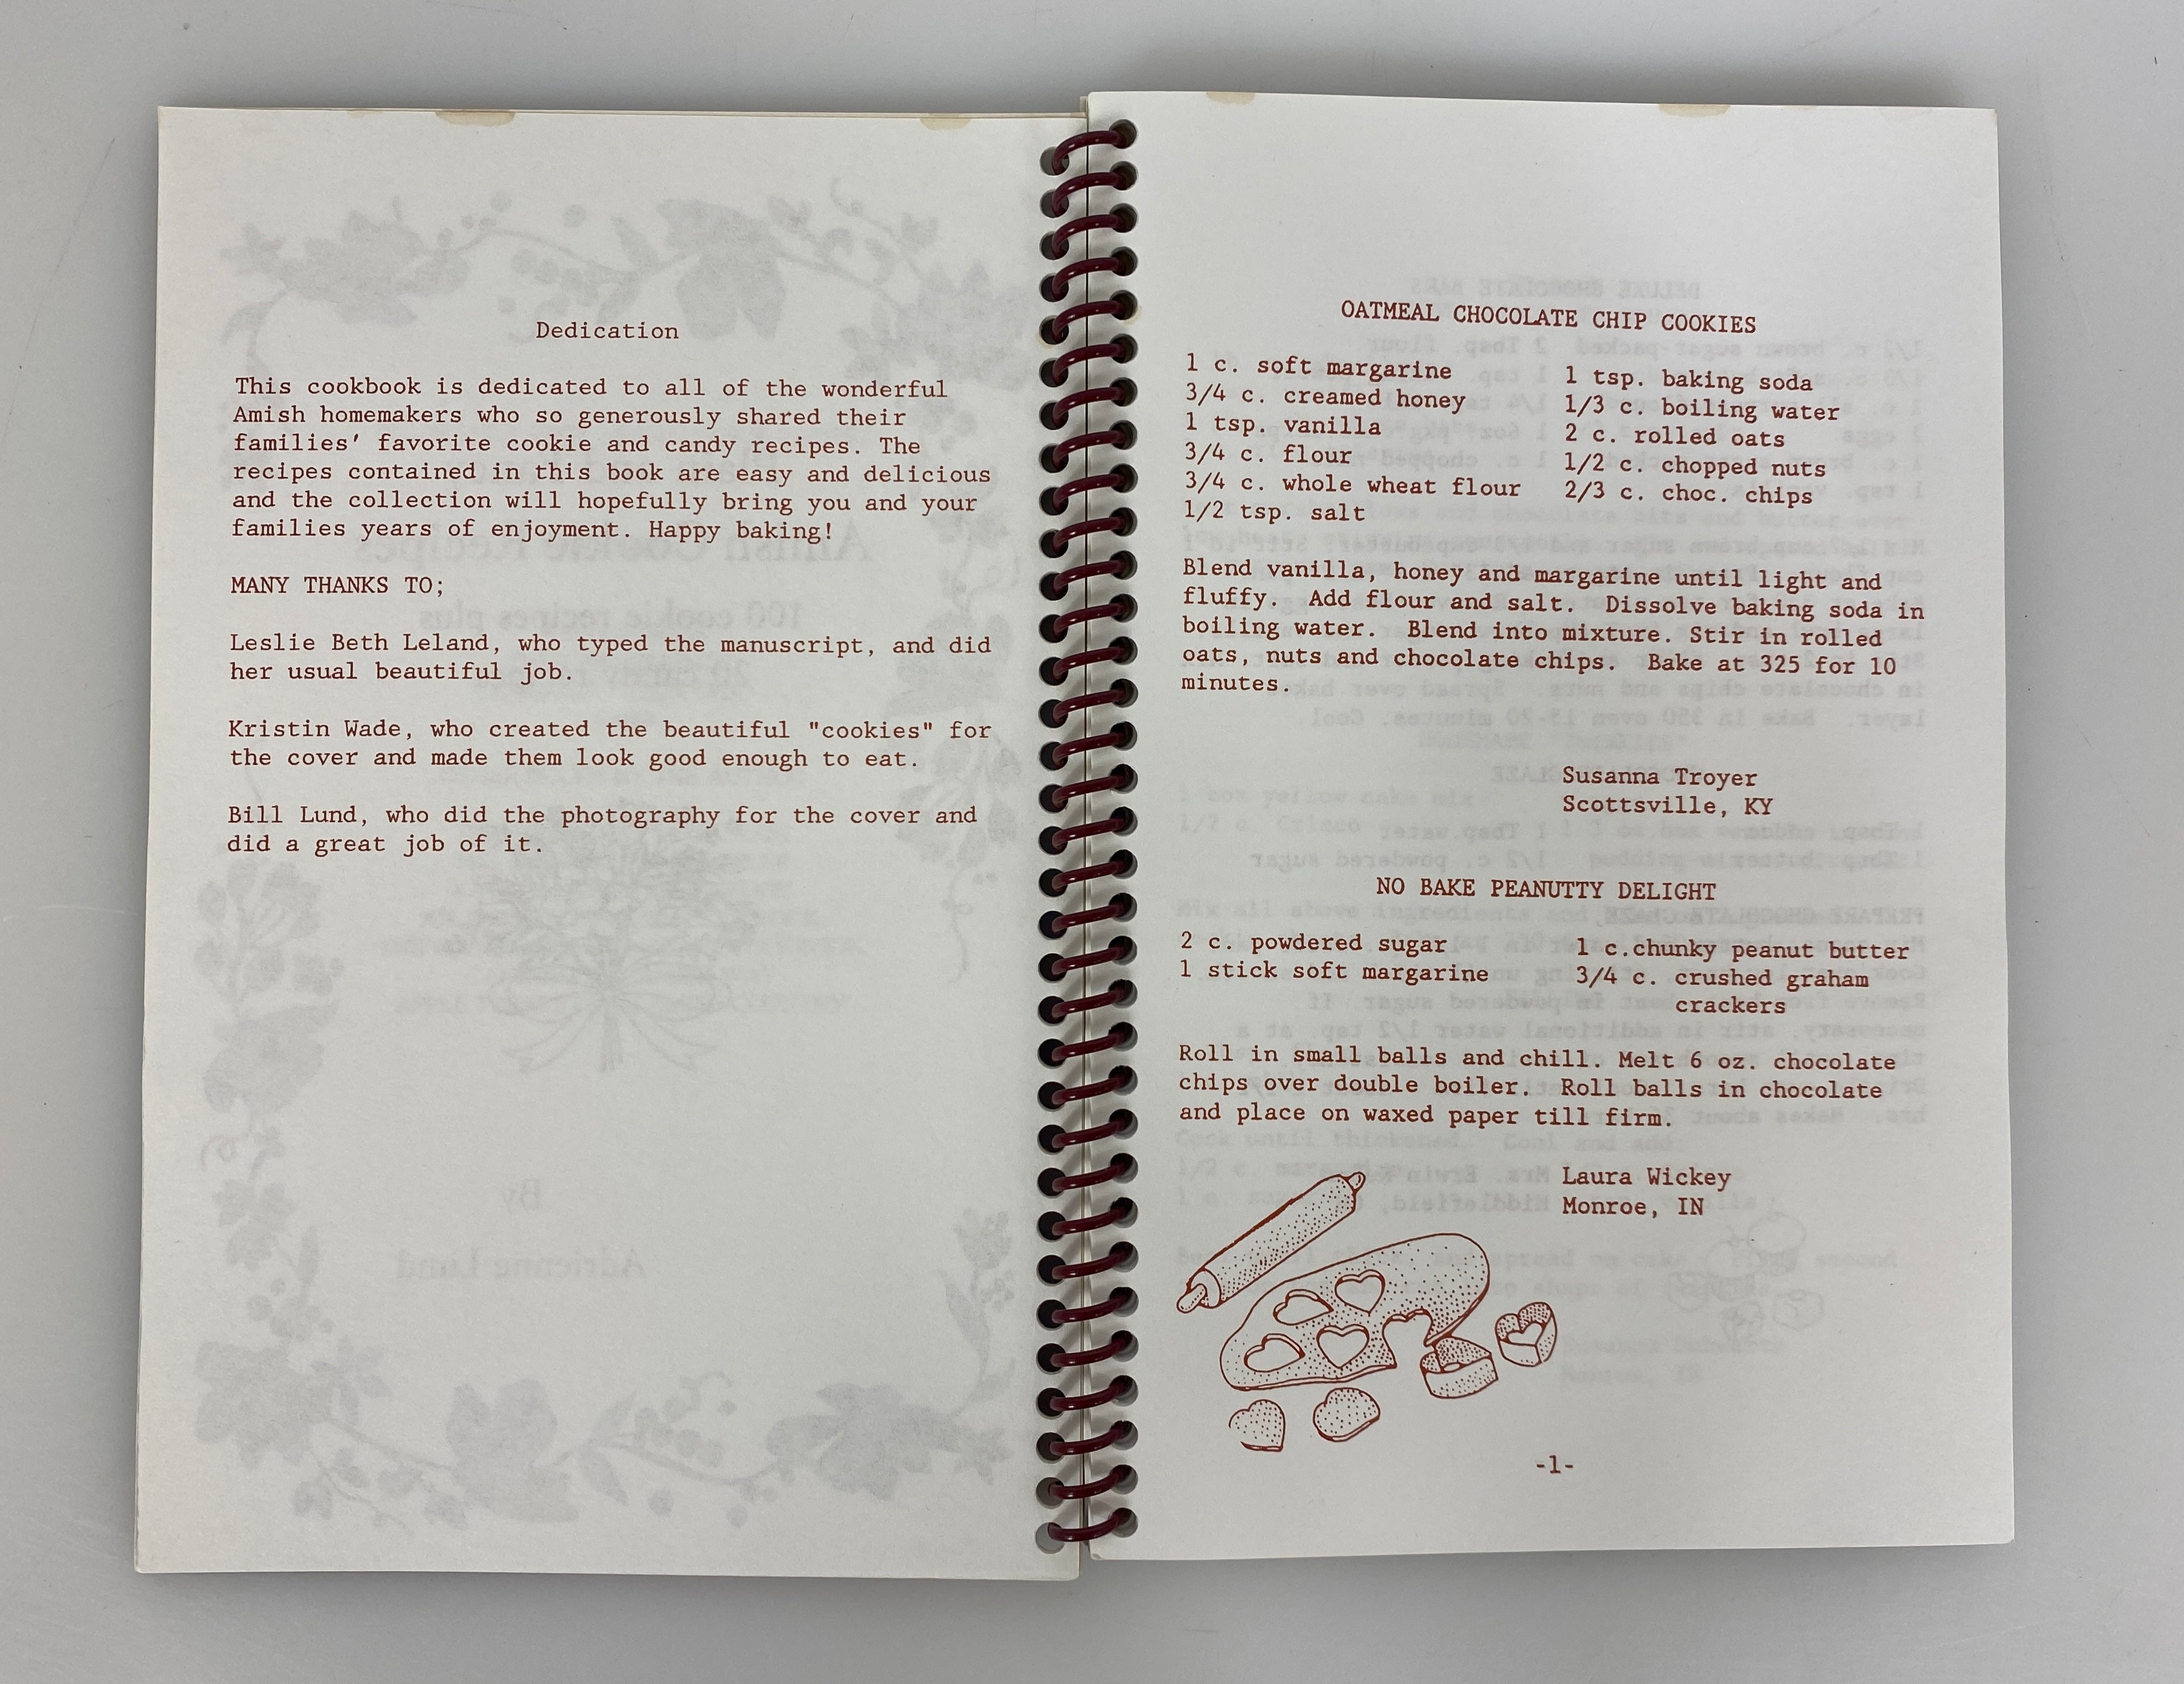 Dedication
This cookbook is dedicated to all of the wonderful
Amish homemakers who so generously shared their
families' favorite cookie and candy recipes. The
recipes contained in this book are easy and delicious
and the collection will hopefully bring you and your
families years of enjoyment. Happy baking!
MANY THANKS TO;
Leslie Beth Leland, who typed the manuscript, and did
her usual beautiful job.
Kristin Wade, who created the beautiful "cookies" for
the cover and made them look good enough to eat.
Bill Lund, who did the photography for the cover and
did a great job of it.
OATMEAL CHOCOLATE CHIP COOKIES
1 c. soft margarine
3/4 c. creamed honey
1 tsp. vanilla
3/4 c. flour
3/4 c. whole wheat flour
1/2 tsp. salt
1 tsp. baking soda
1/3 c. boiling water
2 c. rolled oats
1/2 c. chopped nuts
2/3 c. choc. chips
Blend vanilla, honey and margarine until light and
fluffy. Add flour and salt. Dissolve baking soda in
boiling water. Blend into mixture. Stir in rolled
oats, nuts and chocolate chips. Bake at 325 for 10
minutes.
Susanna Troyer
Scottsville, KY
NO BAKE PEANUTTY DELIGHT
2 c. powdered sugar
1 stick soft margarine
1 c.chunky peanut butter
3/4 c. crushed graham
crackers
Roll in small balls and chill. Melt 6 oz. chocolate
chips over double boiler. Roll balls in chocolate
and place on waxed paper till firm.
Laura Wickey
Monroe, IN
-1-